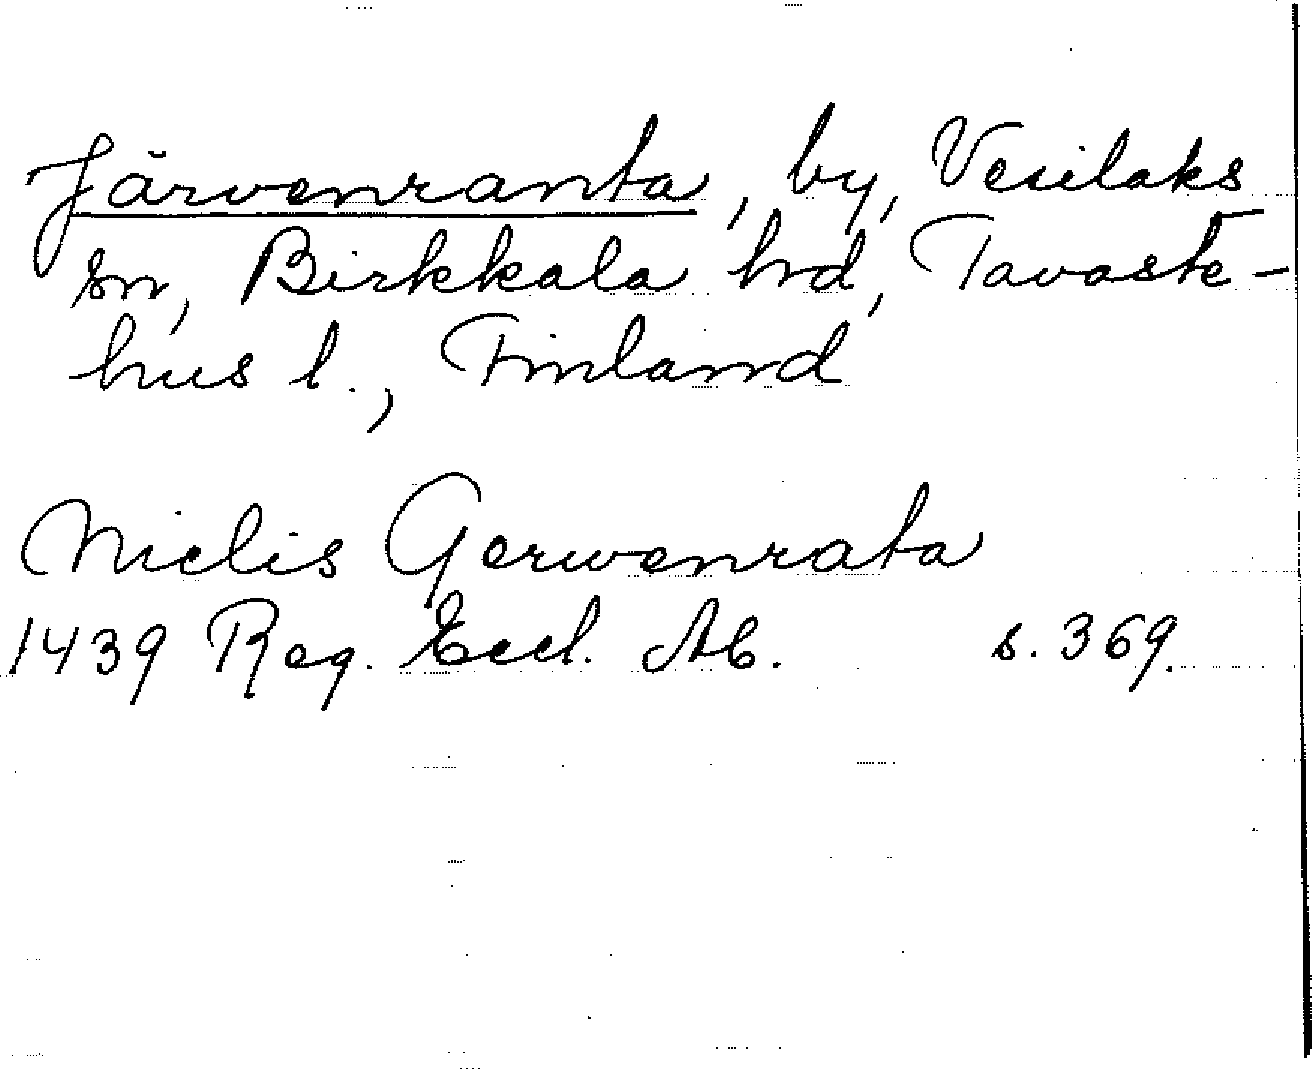 Järvenranta, by, Vesilaks
sn, Birkkala hrd, Tavaste-
hus l., Finland
Nielis Gerwenrata
1439 Reg. Eccl. Ab. s. 369.